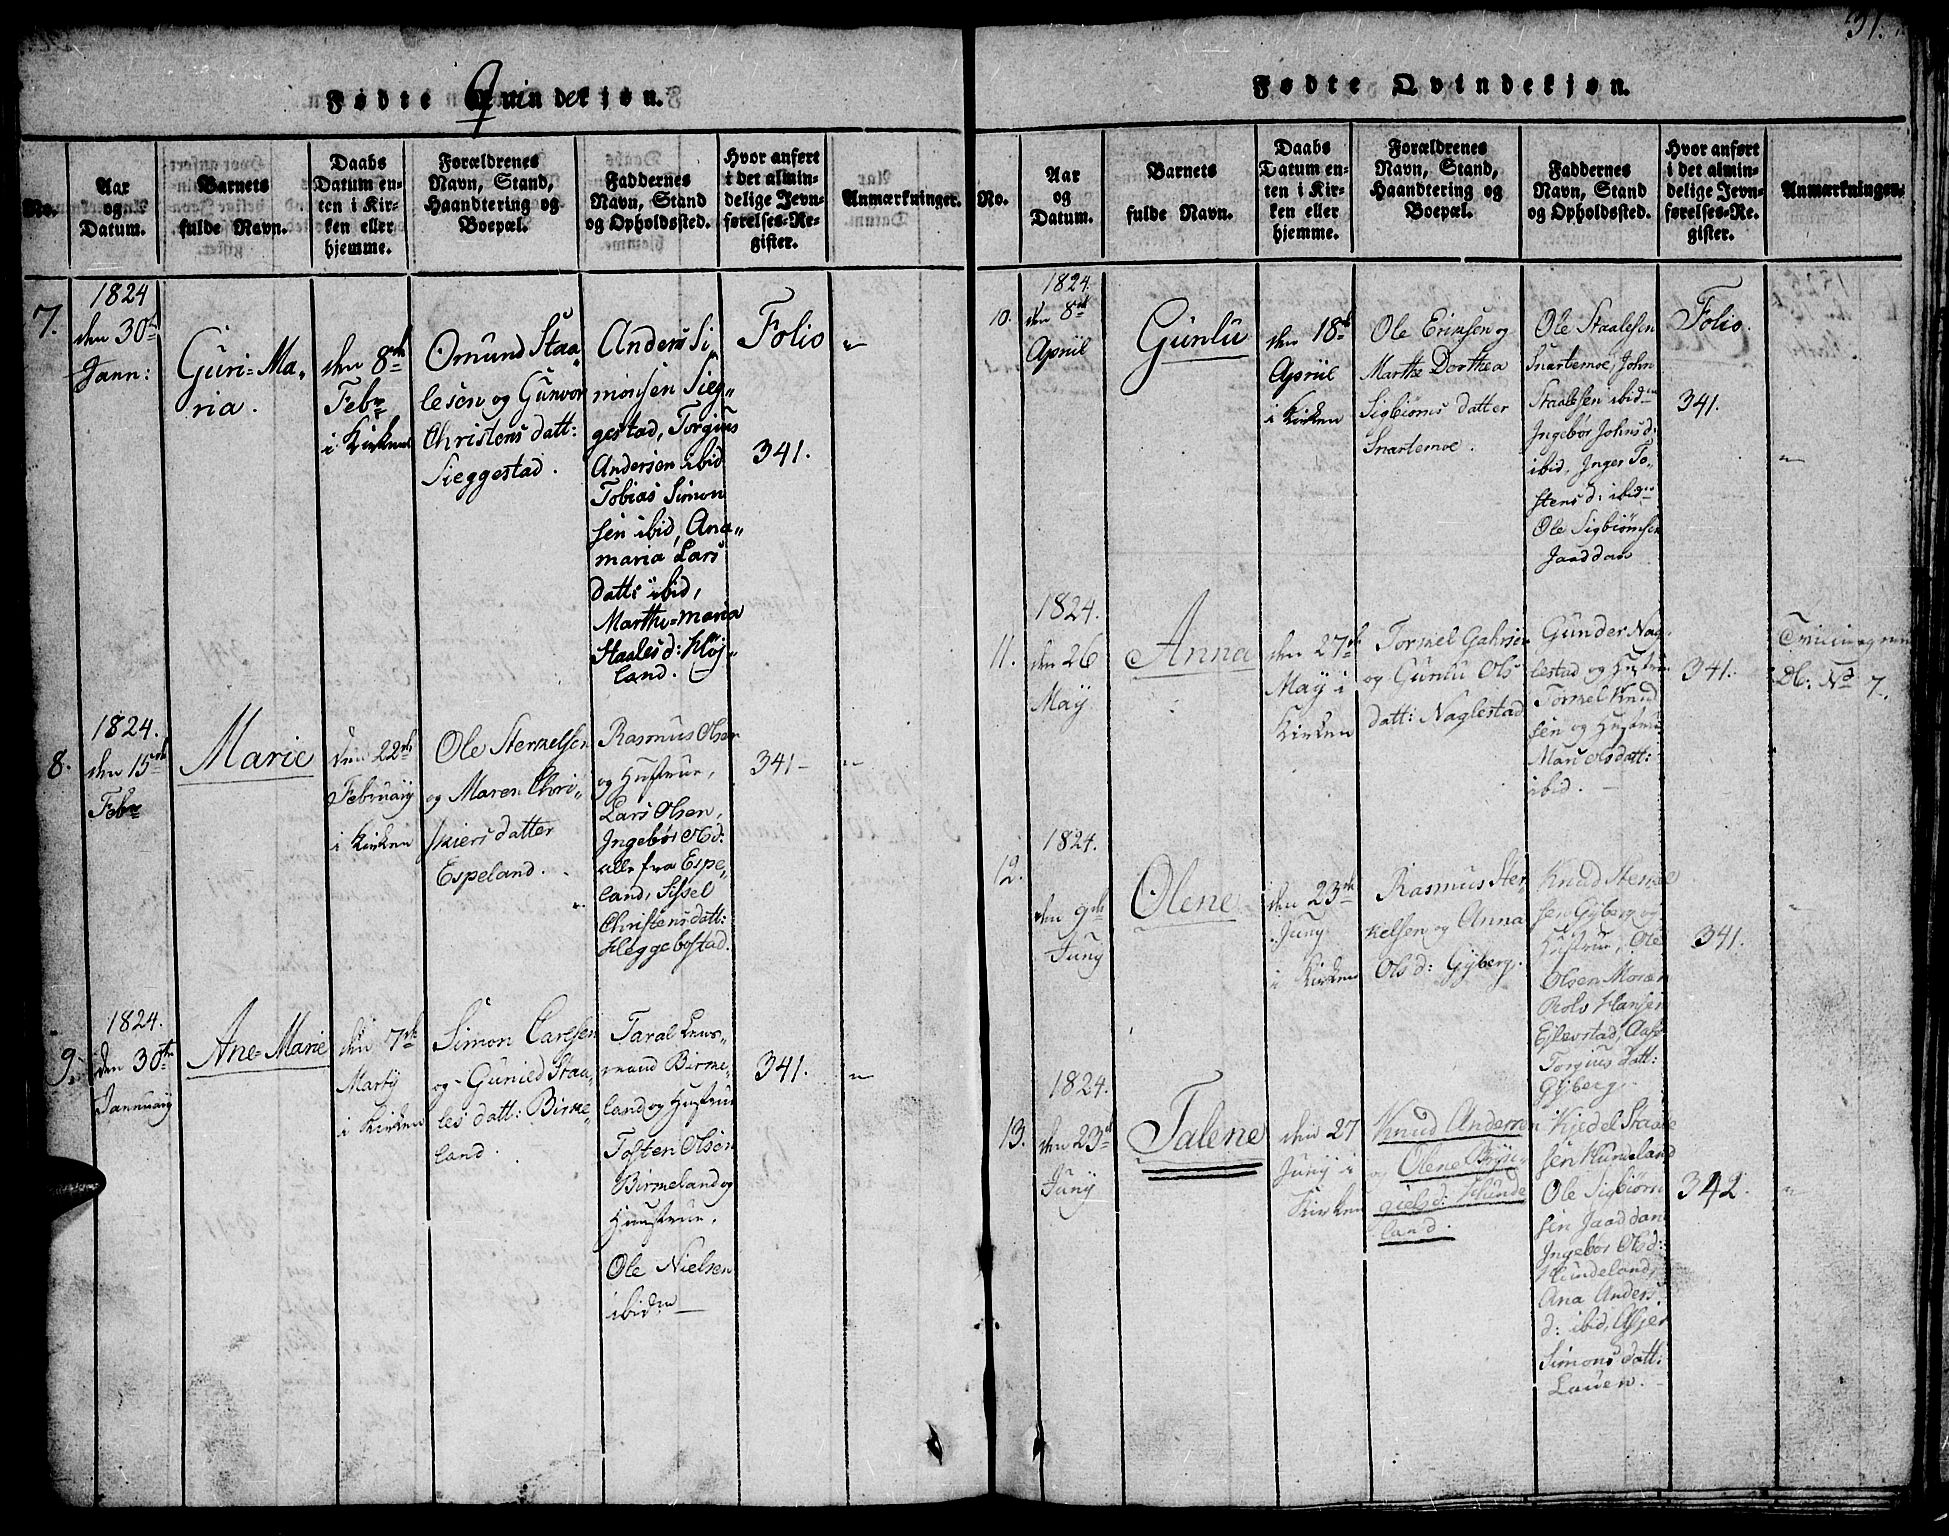 Fødte Qvindekjøn.
No.
Aar
og
Datum.
Barnets
fulde Navn.
Daabs
Datum en-
ten i Kir-
ken eller
hjemme.
Forældrenes
Navn, Stand,
Haandtering og
Boepæl.
Faddernes
Navn, Stand
og Opholdssted.
Hvor anført
i det almin-
delige Jevn-
førelses-Re-
gister.
Anmærkninger.
7.
1824
den 30te
Jann:
Guri-Ma„
ria.
den 8de
Febr
i Kirken
Omund Staa„
lesen og Gunvor
Christens datt:
Sieggestad.
Anders Si„
monsen Sieg„
gestad, Torgius
Andersen ibid
Tobias Simon
sen ibid, Ana„
maria Lars
datt: ibid,
Marthe=maria
Staalesd: Høj„
land.
Folio
341.
„
8.
1824.
den 15de
Febr
Marie
den 22de
Februarij
i Kirken
Ole Sterkelsen
og Maren Chri„
stiers datter
Espeland.
Rasmus Olsen
og Hustrue,
Lars Olsen,
Ingebor Olsd:
alle fra Espe„
land, Sissel
Christensdatt:
Heggebostad.
341-
„
9.
1824.
den 30te
Jannuarij
Ane=Marie
den 7de
Martij
i Kirken
Simon Carlsen
og Gunied Staa„
les datt: Birke
land.
Taral Lens„
mand Birke„
land og Hustrue
Tosten Olsen
Birkeland og
Huustrue,
Ole Nielsen
ibidm
341.
„
31.
Fødte Qvindekjøn.
No.
Aar
og
Datum.
Barnets
fulde Navn.
Daabs
Datum en-
ten i Kir-
ken eller
hjemme.
Forældrenes
Navn, Stand,
Haandtering og
Boepæl.
Faddernes
Navn, Stand
og Opholdssted.
Hvor anført
i det almin-
delige Jevn-
førelses-Re-
gister.
Anmærkninger.
10.
1824.
den 8de
April
Gunlu
den 18de
April
i Kirken
Ole Eriksen og
Marthe Dorthea
Sigbiørns datter
Snartemoe.
Ole Staalesen
Snartemoe, John
Staalesen ibidm
Ingebor Johnsd:
ibid, Inger To„
stensd: ibidm
Ole Sigbiørnsen
Jaaddan
Folio.
341.
„
11.
1824.
den 26
Maÿ
Anna
den 27de
Maÿ i
Kirken
Tormel Gahrsen
og Gunlu Ols
datt: Naglestad
Gunder Nag„
lestad og Hustrue
Tormel Knud
sen og Hustrue
Mari Olsdatt:
ibid.
341.
Db: No 7.
12.
1824.
den 9de
Junÿ
Olene
den 23de
Junÿ
i Kirken
Rasmus Ster„
kelsen og Anna
Olsd: Gÿberg.
Knud Sterkel
sen Gÿberg og
Hustrue, Ole
Olsen Moen
Hansen
Eilevstad, Aase
Torgius datt:
Gÿberg.
341.
„
13.
1824.
den 23de
Junÿ
Talene
den 27
Junÿ i
Kirken
Knud Andersen
og Olene Bÿn„
gielsd: Hunde
land.
Kjedel Staale
sen Hundeland
Ole Sigbiørn
sen Jaaddan
Ingebor Olsd:
Hundeland,
Ana Anders
d: ibid, Asjer
Simons datt:
Lauen.
342.
„